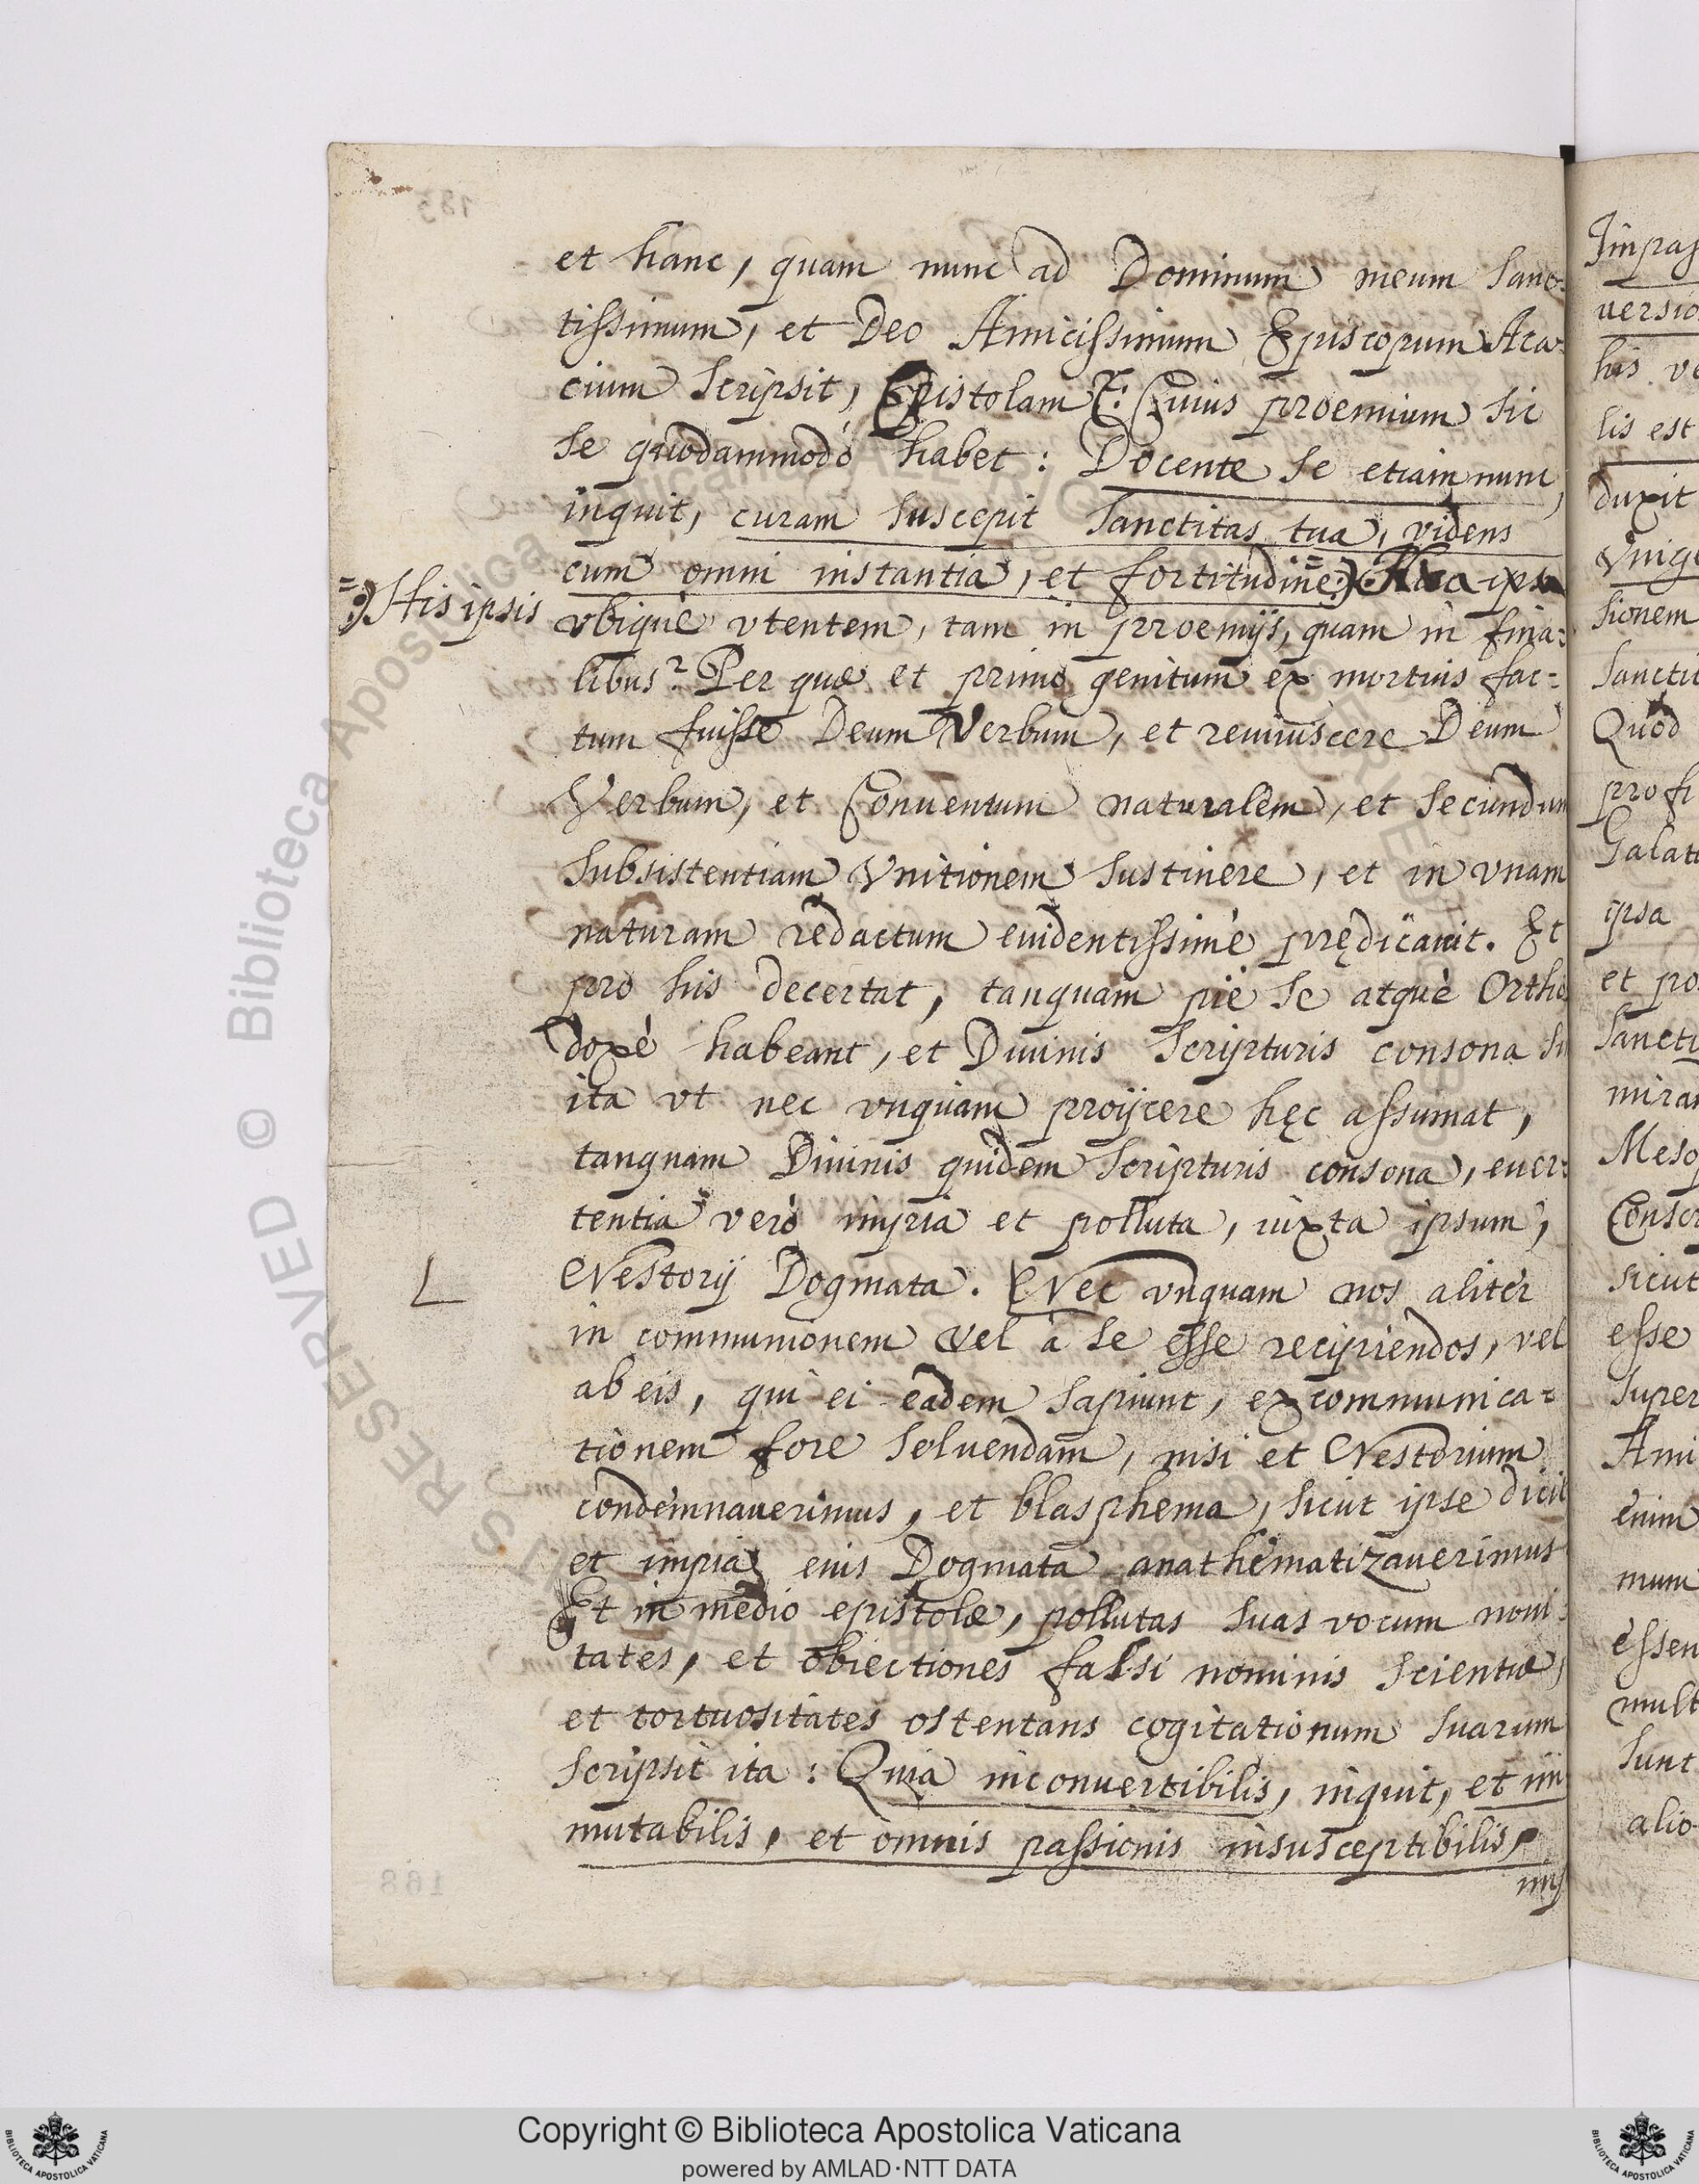 et hanc, quam nunc ad Dominum meum Sanc-
tissimum, et Deo Amicissimum Episcopum Aca-
cium scripsit, Epistolam: Cuius proemium sic
se quodammodò habet: Docente se etiam nunc,
inquit, curam suscepit Sanctitas tua, videns
cum omni instantia, et fortitudine:) Hæc ipsa
=:) His ipsis
vbiquè vtentem, tam in proemijs, quam in fina=
libus? Per quæ et primo genitum ex mortuis fac=
tum fuisse Deum Verbum, et reuiuiscere Deum
Verbum, et Conuentum naturalem, et secundum
subsistentiam Vnitionem sustinere, et in vnam
naturam redactum euidentissimè prędicauit. Et
pro his decertat, tanquam piè se atquè Ortho
doxè habeant, et Diuinis Scripturis consona
ita vt nec vnquam proijcere hęc assumat,
tanquam Diuinis quidem Scripturis consona, euer=
tentia verò impia et polluta, iuxta ipsum,
L
Nestorij Dogmata. [Nec vnquam nos aliter
in communionem vel à se esse recipiendos, vel
ab eis, qui ei eadem sapiunt, excommunica=
tionem fore soluendam, nisi et Nestorium
condemnauerimus, et blasphema, sicut ipse dicit
et impia eius Dogmata anathematizauerimus
Et in medio epistolæ, pollutas suas vocum noui=
tates, et obiectiones falsi nominis scientiæ,
et tortuositates ostentans cogitationum suarum
scripsit ita: Quia inconuertibilis, inquit, et im
mutabilis, et omnis passionis insusceptibilis,
imp
183
168
Impas
versio
his ve
lis est
duxit
Vnige
sionem
Sanctit
Quod
pro fi
Galat
ipsa
et po
Sancti
miran
Mesop
Conser
sicut
esse
super
Ami
enim
mum
essen
mult
sunt
alio
RESERVED © Biblioteca Apostolica
Copyright © Biblioteca Apostolica Vaticana
powered by AMLAD·NTT DATA
BIBLIOTECA APOSTOLICA VATICANA
BIBLIOTECA APOSTOLICA VATICANA